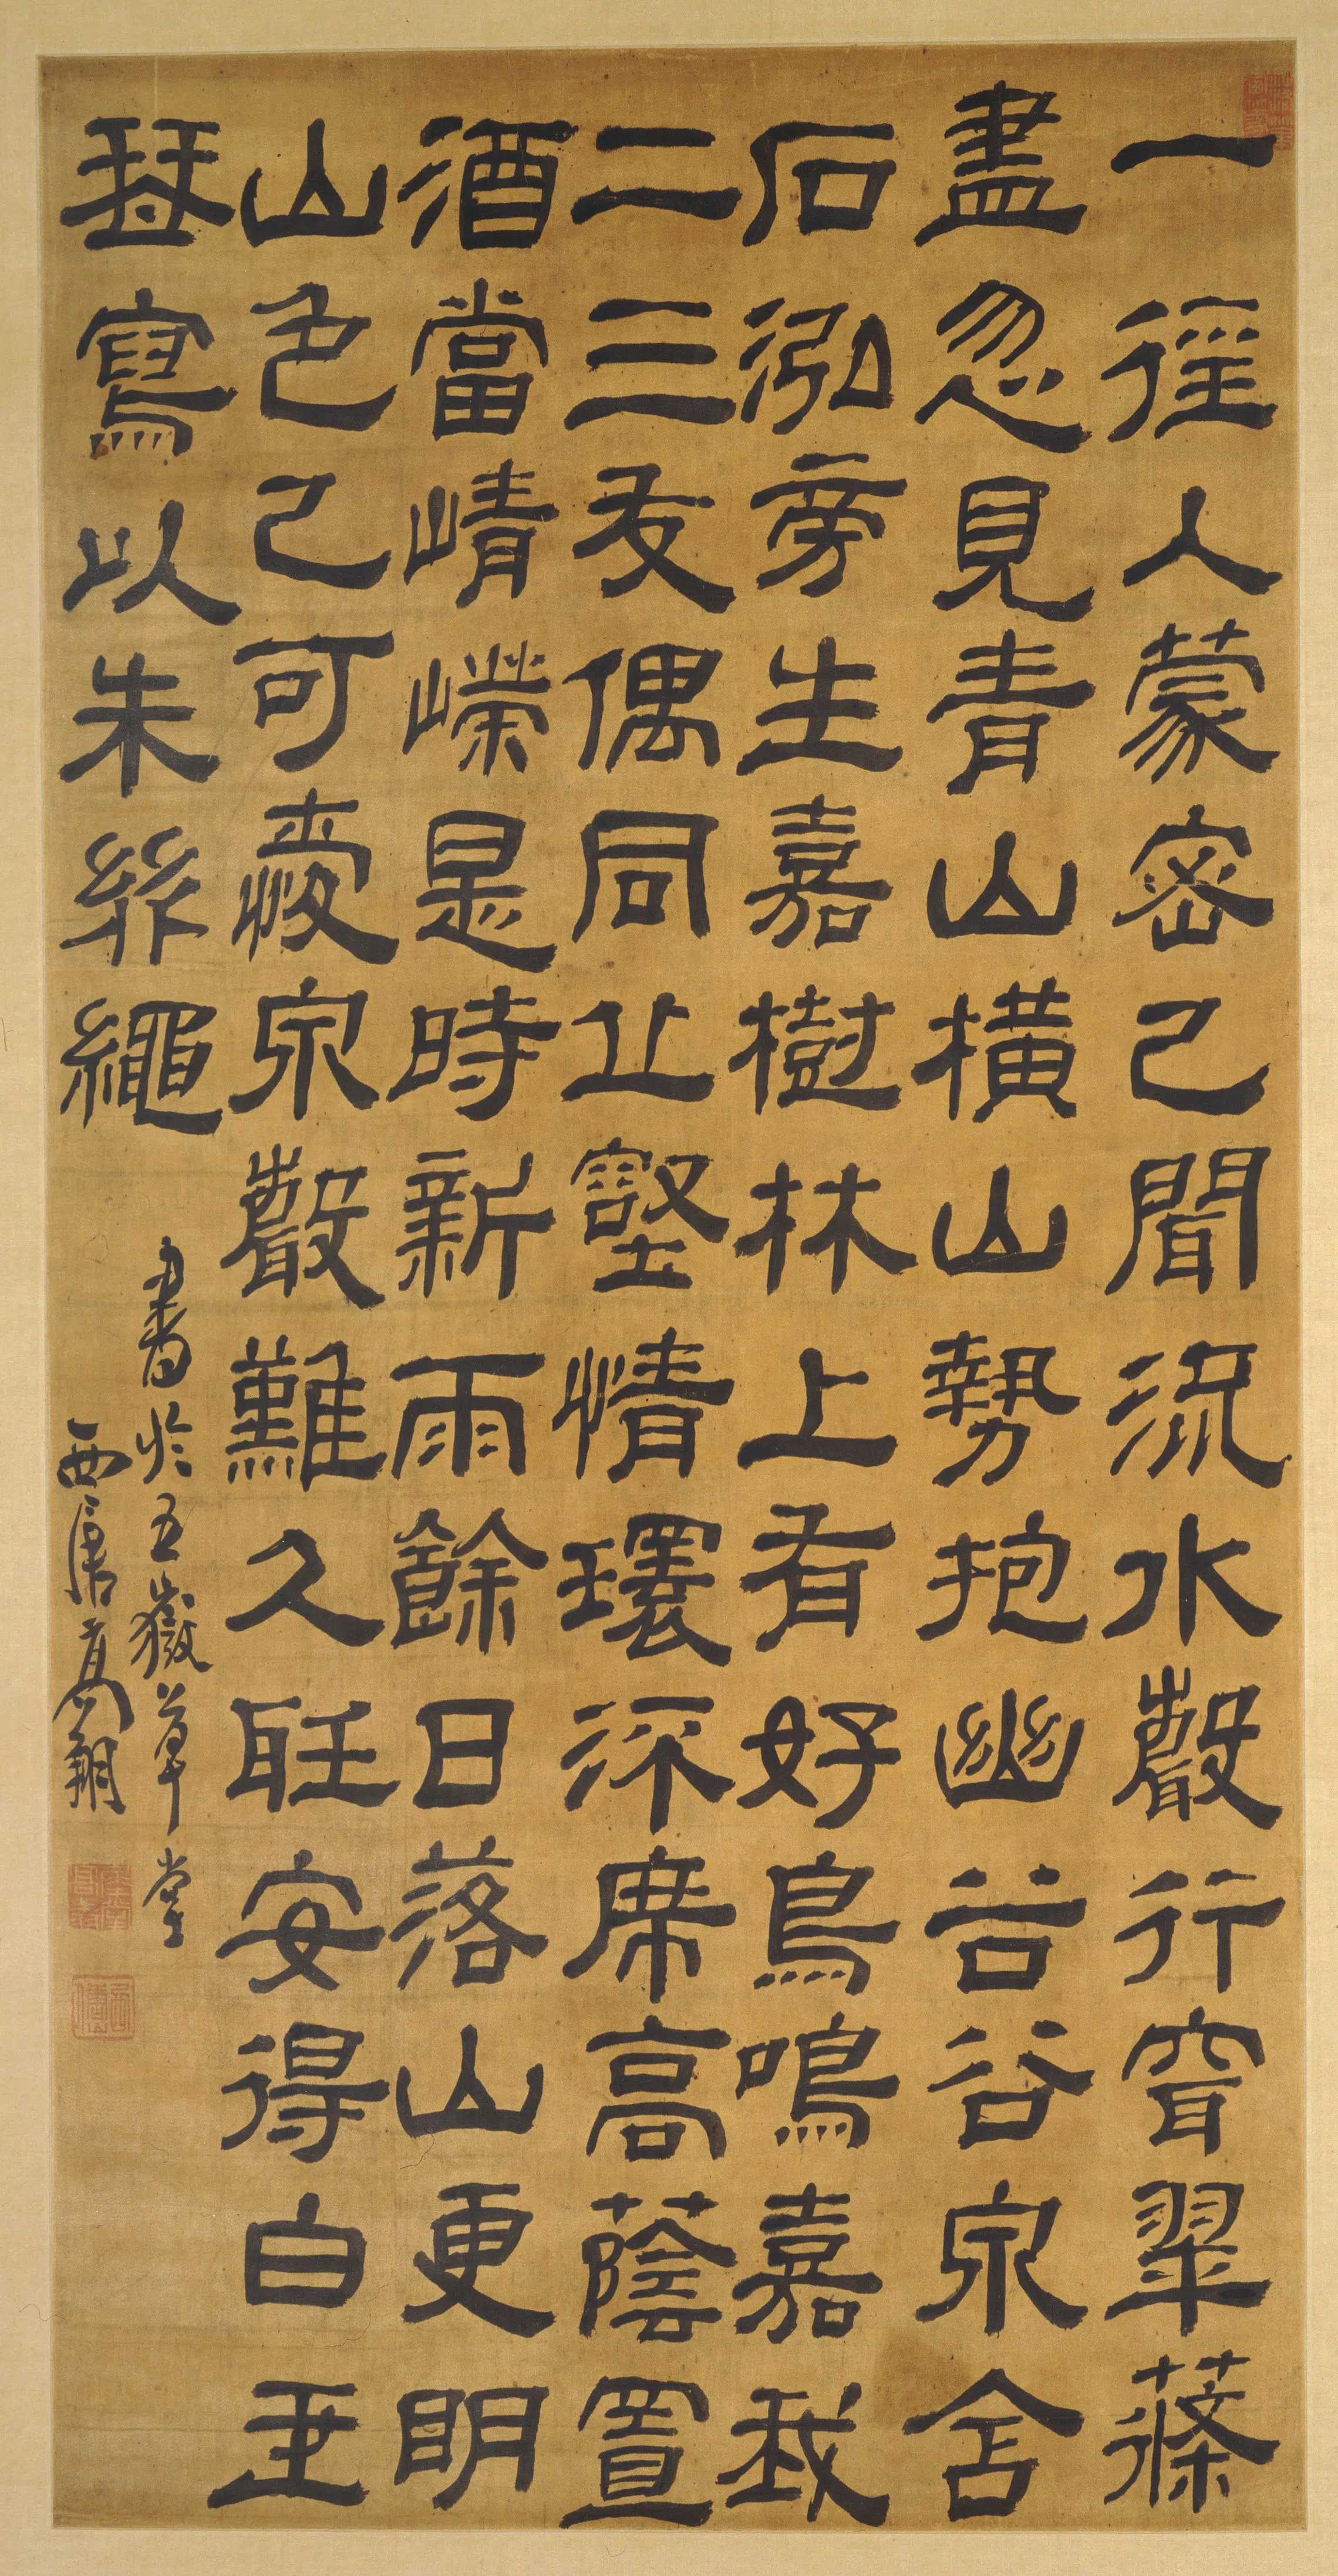 一徑入蒙密已聞流水聲行穿翠蓧
盡忽見青山橫山勢抱幽谷谷泉含
石泓旁生嘉樹林上有好鳥鳴嘉我
二三友偶同丘壑情環深席高蔭置
酒當崝嶸是時新雨餘日落山更明
山色已可愛泉聲難久聽安得白玉
琴寫以朱絲繩
書於五嶽草堂
西唐高翔